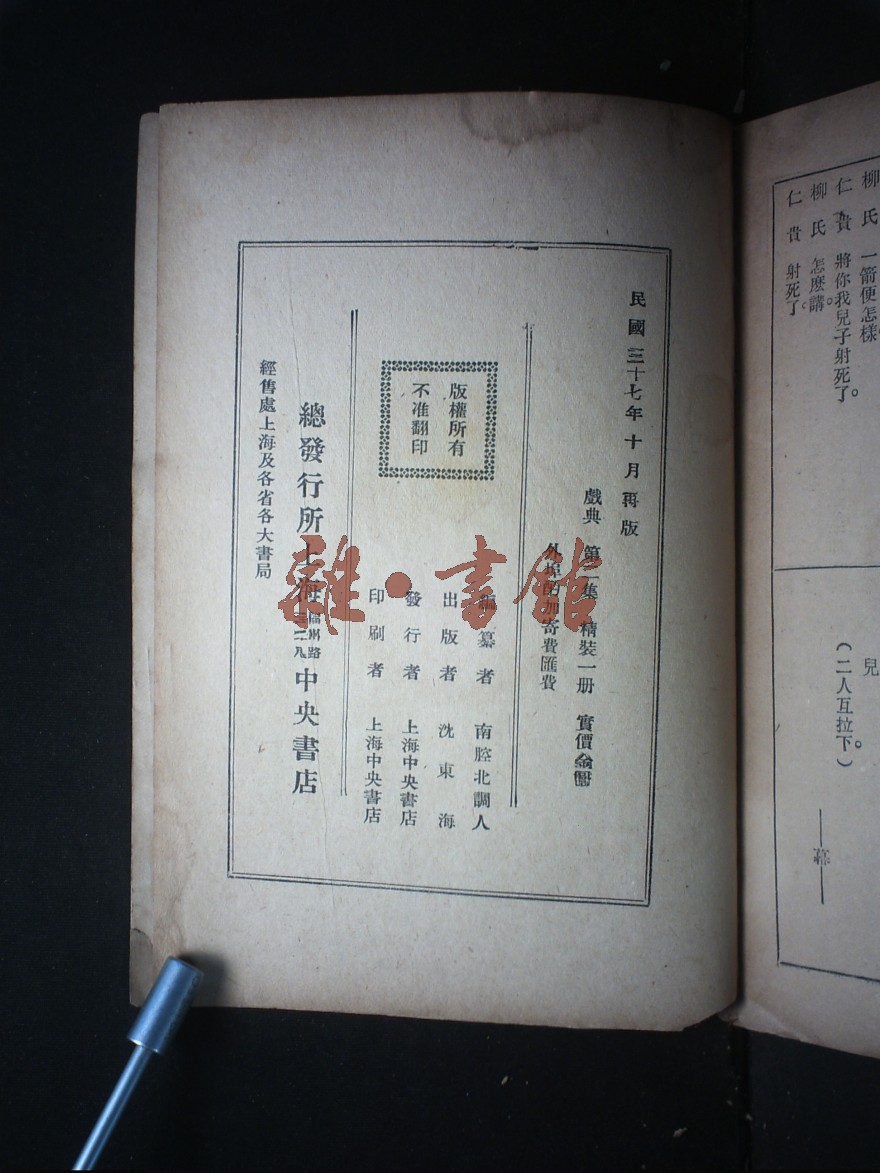 柳氏 一箭便怎樣
仁貴 將你我兒子射死了。
柳氏 怎麽講。
仁貴 射死了。
兒
(二人互拉下。)
——幕——
民國三十七年十月再版
戲典 第二集 精裝一册 實價
外埠酌加寄費匯費
編纂者 南腔北調人
出版者 沈東海
發行者 上海中央書店
印刷者 上海中央書店
版權所有
不准翻印
總發行所上海福州路三二八中央書店
經售處上海及各省各大書局
雜·書館